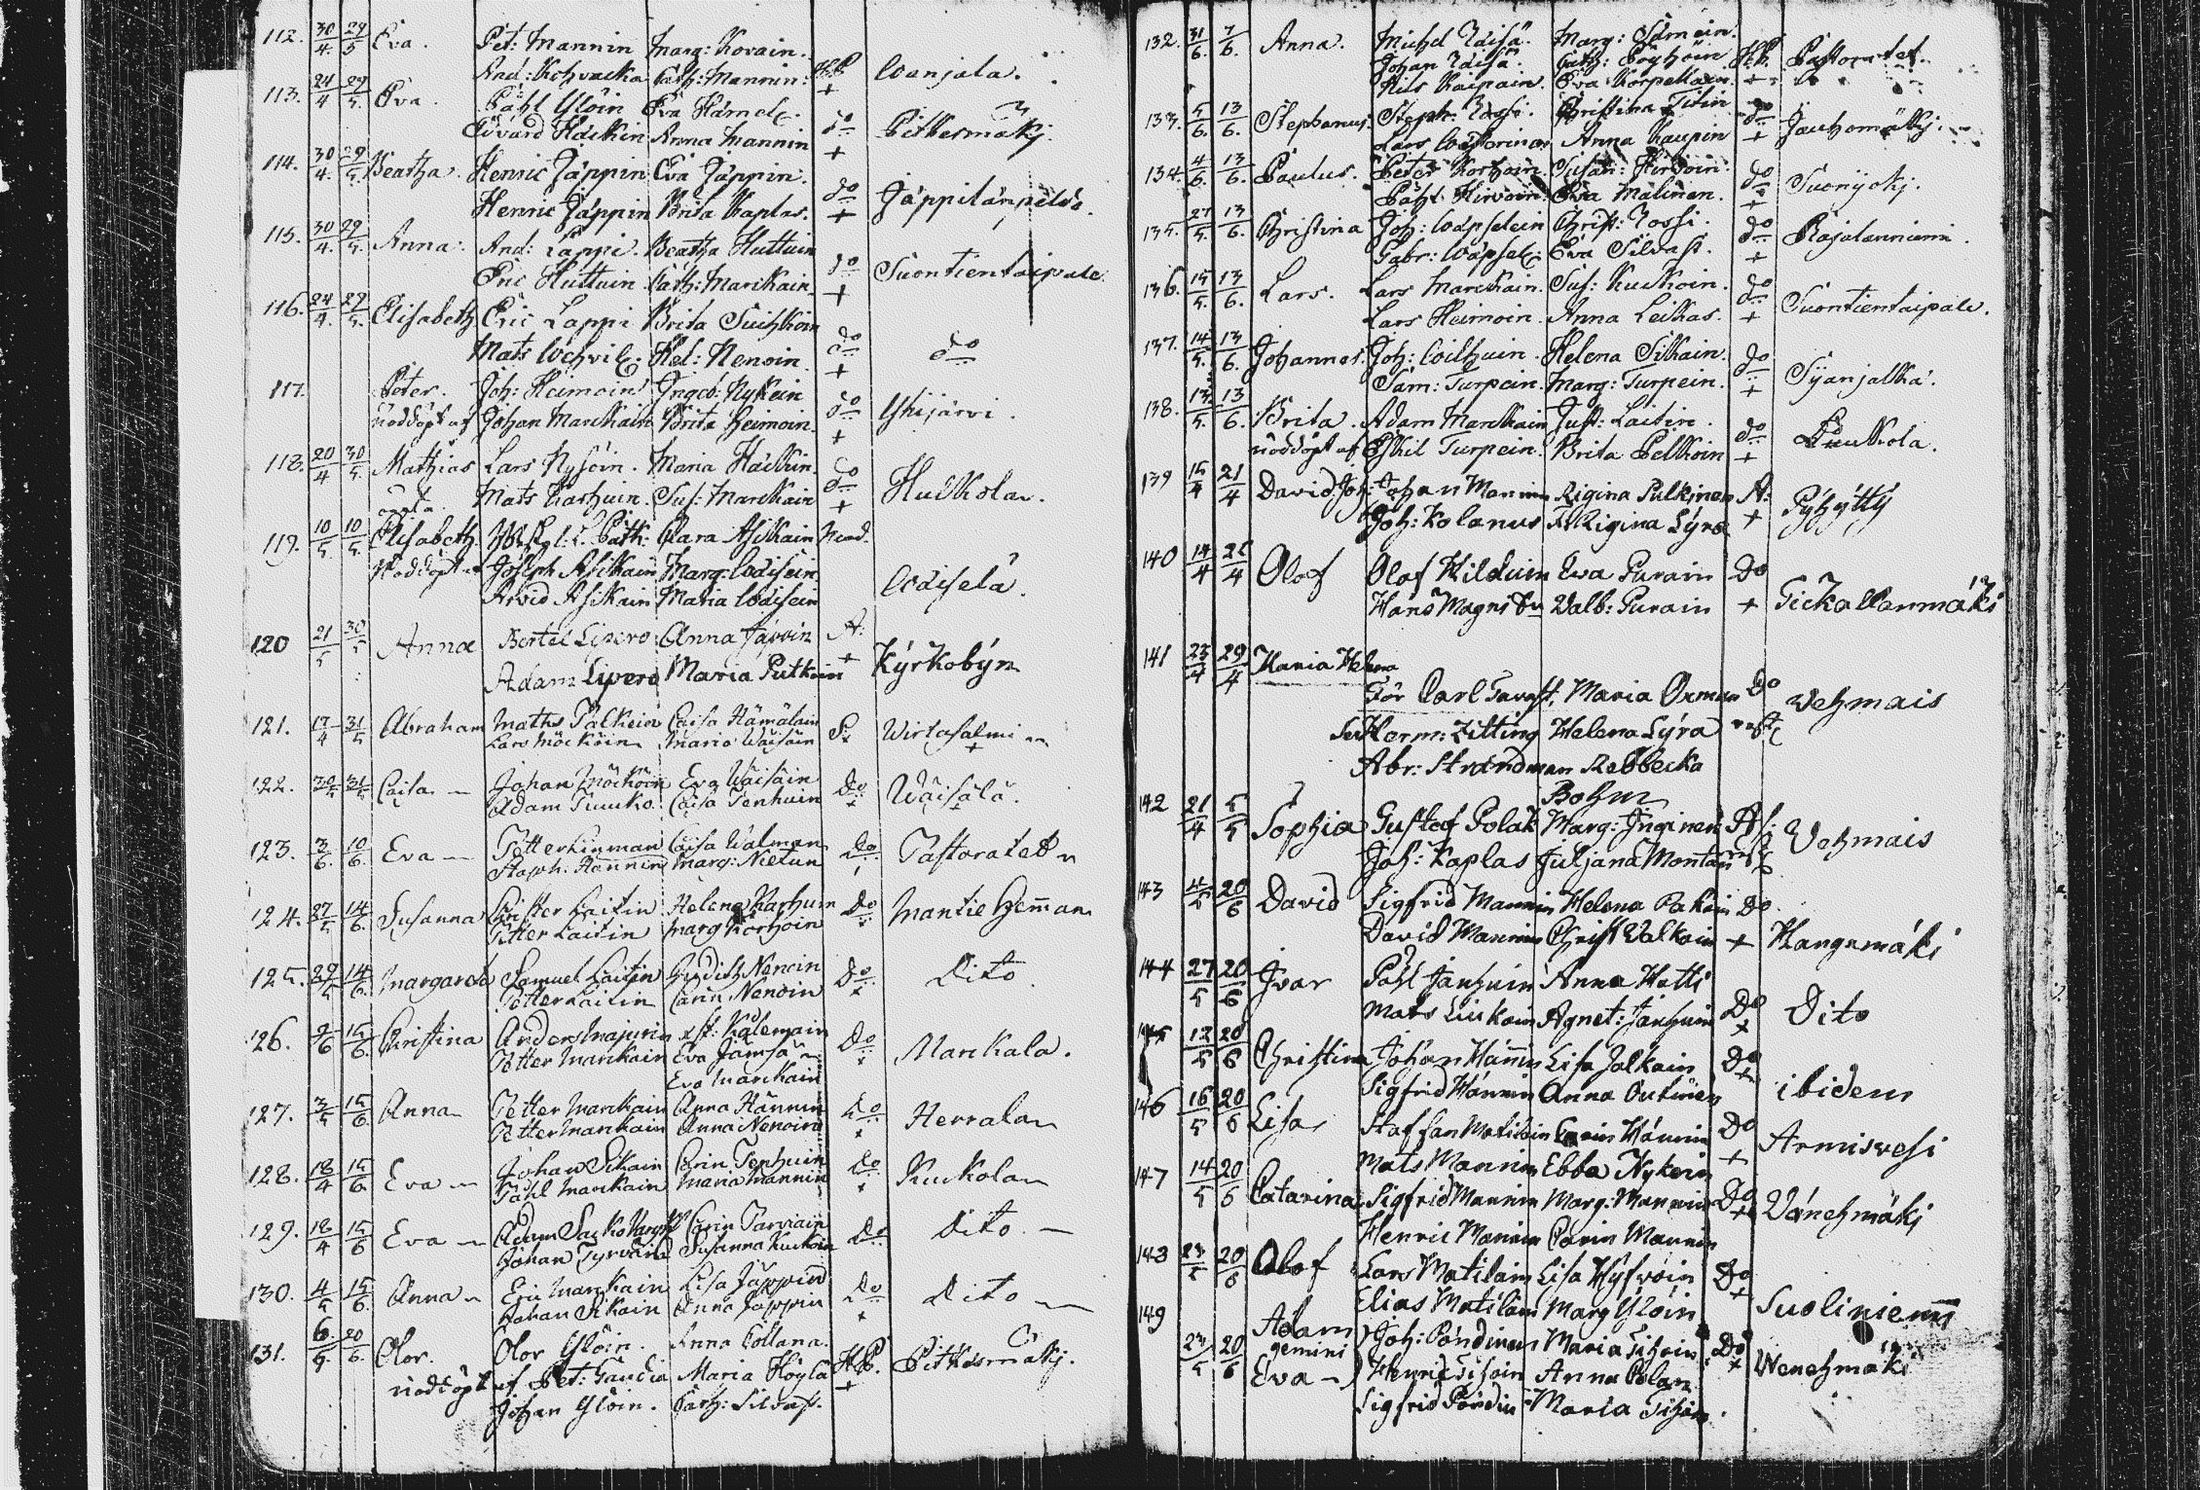 112. 30/4. 29/5 Eva. Pet: Mannin Marg: Kovain.
And: Kohvacka Cath: Mannin. H.P. + Wanjala.
113. 24/4 29/5. Eva. Påhl Ylöin Eva Hämel:
Edvard Häckin Anna Mannin do + Pitkesmäkj
114. 30/4. 29/5 Beatha. Henric Jäppin Eva Jäppin.
Henric Jäppin Brita Kaplas. do + Jäppilänpeldo.
115. 30/4. 29/5. Anna. And: Lappi. Beatha Huttuin
Eric Huttuin Cath: Marckain do + Suontientaipale.
116. 24/4. 29/5. Elisabeth Eric Lappi Brita Suihkoin
Mats Wehvil: Hel: Nenoin. do + do
117. Peter. Joh: Heimoin Ingeb: Nykein
nöddöpt af Johan Marckain Brita Heimoin. do + Yhijärvi.
118. 20/4 30/5. Mathias Lars Nysöin. Maria Häckin.
Mats Karhuin. Sus: Marckain do + Huckola.
119. 10/5 10/5. Elisabeth Clara Asikain
Nöddöpt Joseph Asikain Marg: Wäisein
Arvid Asikain Maria Wäisein Wäiselä.
120 21/5 30/5 Anna Bertel Lipero Anna Järvin A:
Adam Lipero Maria Putkoin + Kýrkobýn
121. 17/4 31/5 Abraham Maths Pälkein Caisa Hämäläin
Lars Möcköin Maria Wäisäin S: Wirtasalmi
122. 30/5 31/5 Caisa Johan Möcköin Eva Wäisäin
Adam Tuuko. Caisa Tenhuin Do Wäisälä.
123. 3/6. 10/6. Eva Petter Linman Caisa Walman
Staph: Hännin Marg: Nietun Do Pastoratet
124. 27/5 14/6. Susanna Petter Laitin Helena Karhuin
Petter Laitin Marg Korhoin Do Mantie Hemman
125. 29/5 14/6. Margareta Samuel Laitin Judith Nenoin
Petter Laitin Carin Nenoin Do Dito
126. 2/6 15/6. Christina Anders Majurin Kålemain
Petter Marckain Eva Jämsä
Eva Marckain Do Marckala.
127. 3/5 15/6. Anna Petter Marckain Anna Hännin
Petter Marckain Anna Nenoin Do Herrala
128. 18/4 15/6 Eva Johan Sikain Carin Tenhuin
Påhl Marckain Maria Mannin Do Kuckola
129. 18/4 15/6 Eva Adam Sacko Carin Parviain
Johan Tyrväin Susanna Kuckoin Do Dito
130. 4/5 15/6. Anna Eric Marckain Lisa Jäppin
Johan Sikain Anna Jäppin Do Dito
131. 6/5. 20/6. Olor. Olor Ylöin. Anna Collana.
nöddöpt af Pet: Gaudia Maria Höylä H.P. + Pitkesmäkj.
Johan Ylöin. Cath: Silvast.
132. 31/6. 7/6. Anna. Michel Räisä. Marg:
Johan Räisä. Cath: Pöyhöin H.P. Pastoratet.
Nils Kaipain. Eva Korpelain +
133. 5/6. 13/6. Stephanus. Steph: Rossi. Christina Titin do
Lars Wästerinen Anna Kaupin + Jauhomäkj.
134. 4/6. 13/6. Paulus. Peter Korhoin Susan: Hirvoin. do
Påhl Hirvoin. Eva Mälinen. + Suonjokj.
135. 27/5. 13/6. Christina Joh: Wäpselein Christ: Rossi. do
Gabr: Wäpsel: Eva Silvast. + Rajalanniemi.
136. 15/5. 13/6. Lars. Lars Marckain. Sus: Kuckoin. do
Lars Heimoin. Anna Leikas. + Suontientaipale.
137. 14/5. 13/6. Johannes. Joh: Wilhuin. Helena Sikain. do
Sam: Turpein. Marg: Turpein. + Syänjalka.
138. 13/5. 13/6. Brita. Adam Marckain Just: Laitin. do
nöddöpt af Eskil Turpein. Brita Pelkoin + Liukkola.
139 15/4 21/4 David Joh: Johan Mannin Rigina Pulkinen A:
Joh: Kolanus Rigina Lýra + Pýhýttý
140 14/4 21/4 Olof Olof Hilduin Ewa Purain Do
Hans Magni Walb: Purain + Tickallanmäki
141 23/4 29/4 Maria Helena
För Carl Tavast, Maria Oxman Do Wehmais
Herm: Zitting Helena Lýra
Abr: Strandman Rebbecka
Bohm
142 21/4 5/5 Sophia Gustof Polak Marg: Inginen A:
Joh: Kaplas Juljana Montan Wehmais
143 4/5 20/6 David Sigfrid Mannin Helena Pakain Do
David Mannin Christ Walkain + Kangamäki
144 27/5 20/6 Ivar Påhl Janhuin Anna Hatti
Mats Liukoin Agnet: Janhuin Do Dito
145 12/5 20/6 Christina Johan Hännin Lisa Jalkain Do
Sigfrid Hännin Anna Outinen ibidem
146 16/5 20/6 Lisa Staffan Matilain Carin Hännin Do
Mats Mannin Ebba Nykein + Armisvesi
147 14/5 20/6 Catarina Sigfrid Mannin Marg: Mannin Do Wänehmäkj
Henric Mannin Carin Mannin
148 23/5 20/6 Olof Lars Matilain Lisa Hyfvöin Do
Elias Matilain Marg Ylöin Suoliniemi
149 23/5 20/6 Adam
gemini Joh: Pöndinen Maria Tihoin Do
Eva Henric Tihoin Anna Polan Wenehmäki
Sigfrid Pöndin Maria Tihoin.